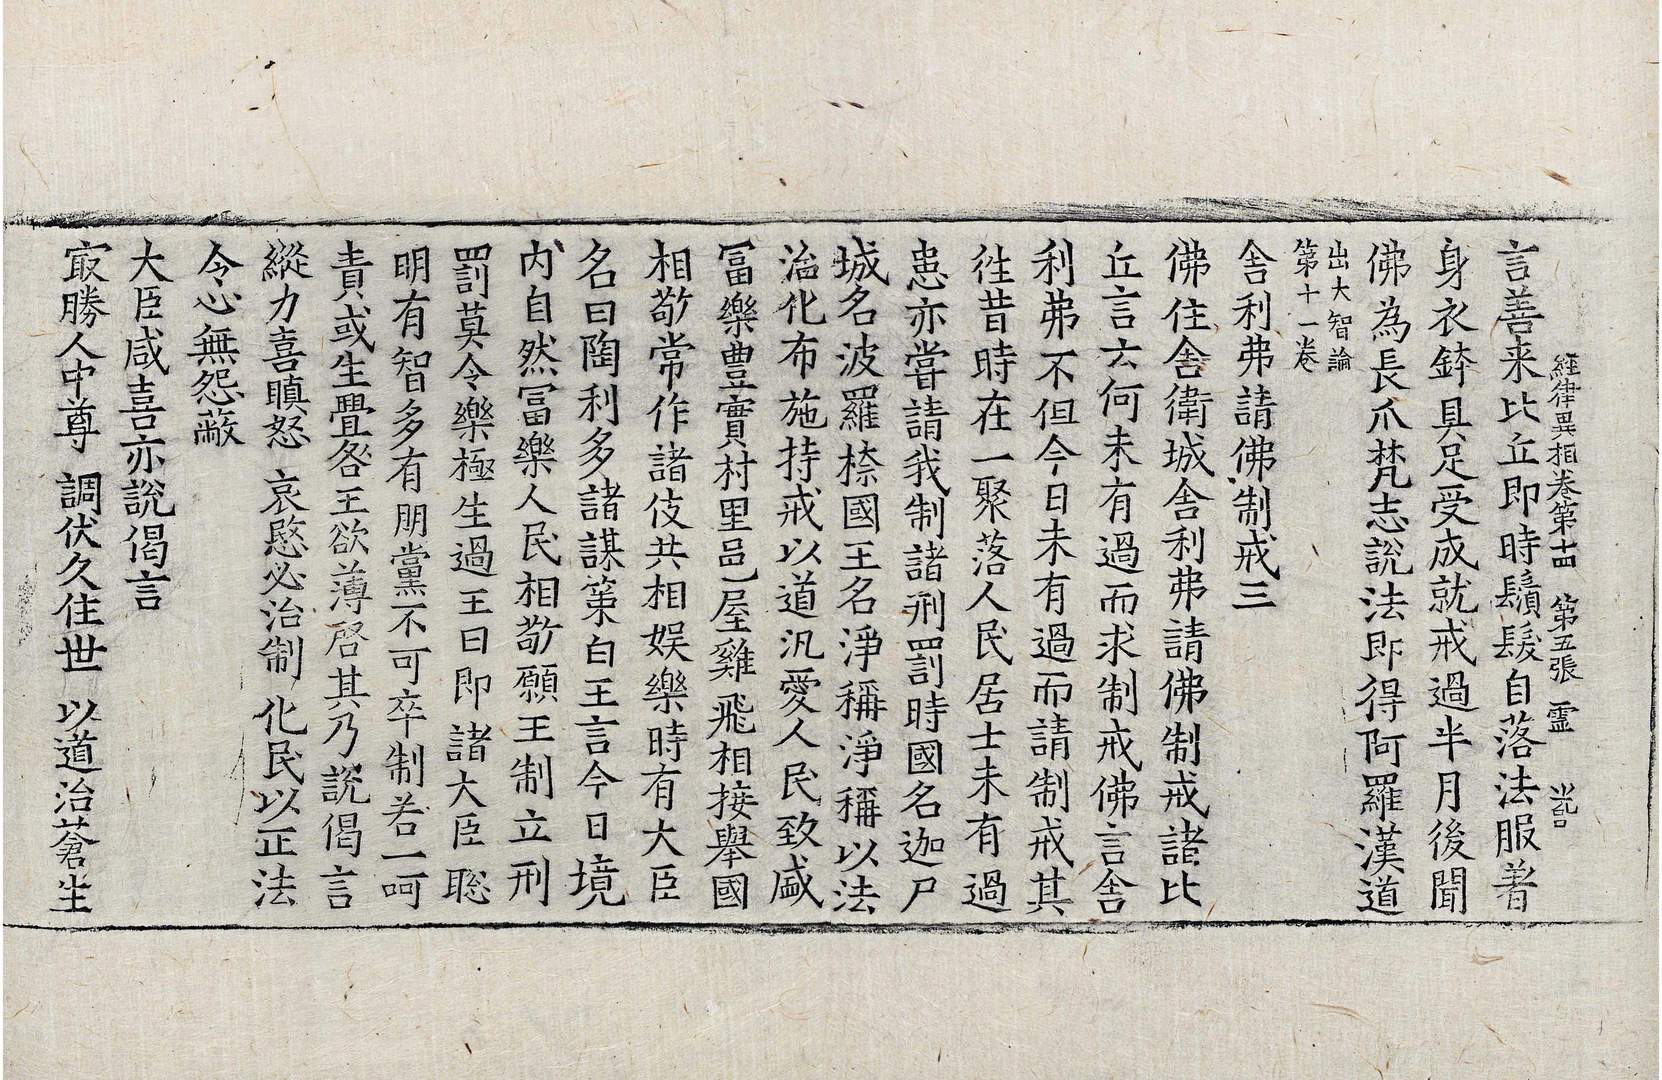 經律異相卷第十四 第五張 靈
言善来比丘即時鬚髮自落法服著
身衣鉢具足受成就戒過半月後聞
佛為長爪梵志說法即得阿羅漢道
出大智論
第十一卷
舍利弗請佛制戒三
佛住舍衛城舍利弗請佛制戒諸比
丘言云何未有過而求制戒佛言舍
利弗不但今日未有過而請制戒其
徃昔時在一聚落人民居士未有過
患亦嘗請我制諸刑罰時國名迦尸
城名波羅㮈國王名淨稱淨稱以法
治化布施持戒以道汎愛人民致盛
冨樂豊實村里邑屋雞飛相接舉國
相敬常作諸伎共相娱樂時有大臣
名曰陶利多諸謀策白王言今日境
内自然冨樂人民相敬願王制立刑
罰莫令樂極生過王曰即諸大臣聡
明有智多有朋黨不可卒制若一呵
責或生舋咎王欲薄啓其乃說偈言
縱力喜瞋怒 哀愍必治制 化民以正法
令心無怨蔽
大臣咸喜亦說偈言
㝡勝人中尊 調伏久住世 以道治蒼生